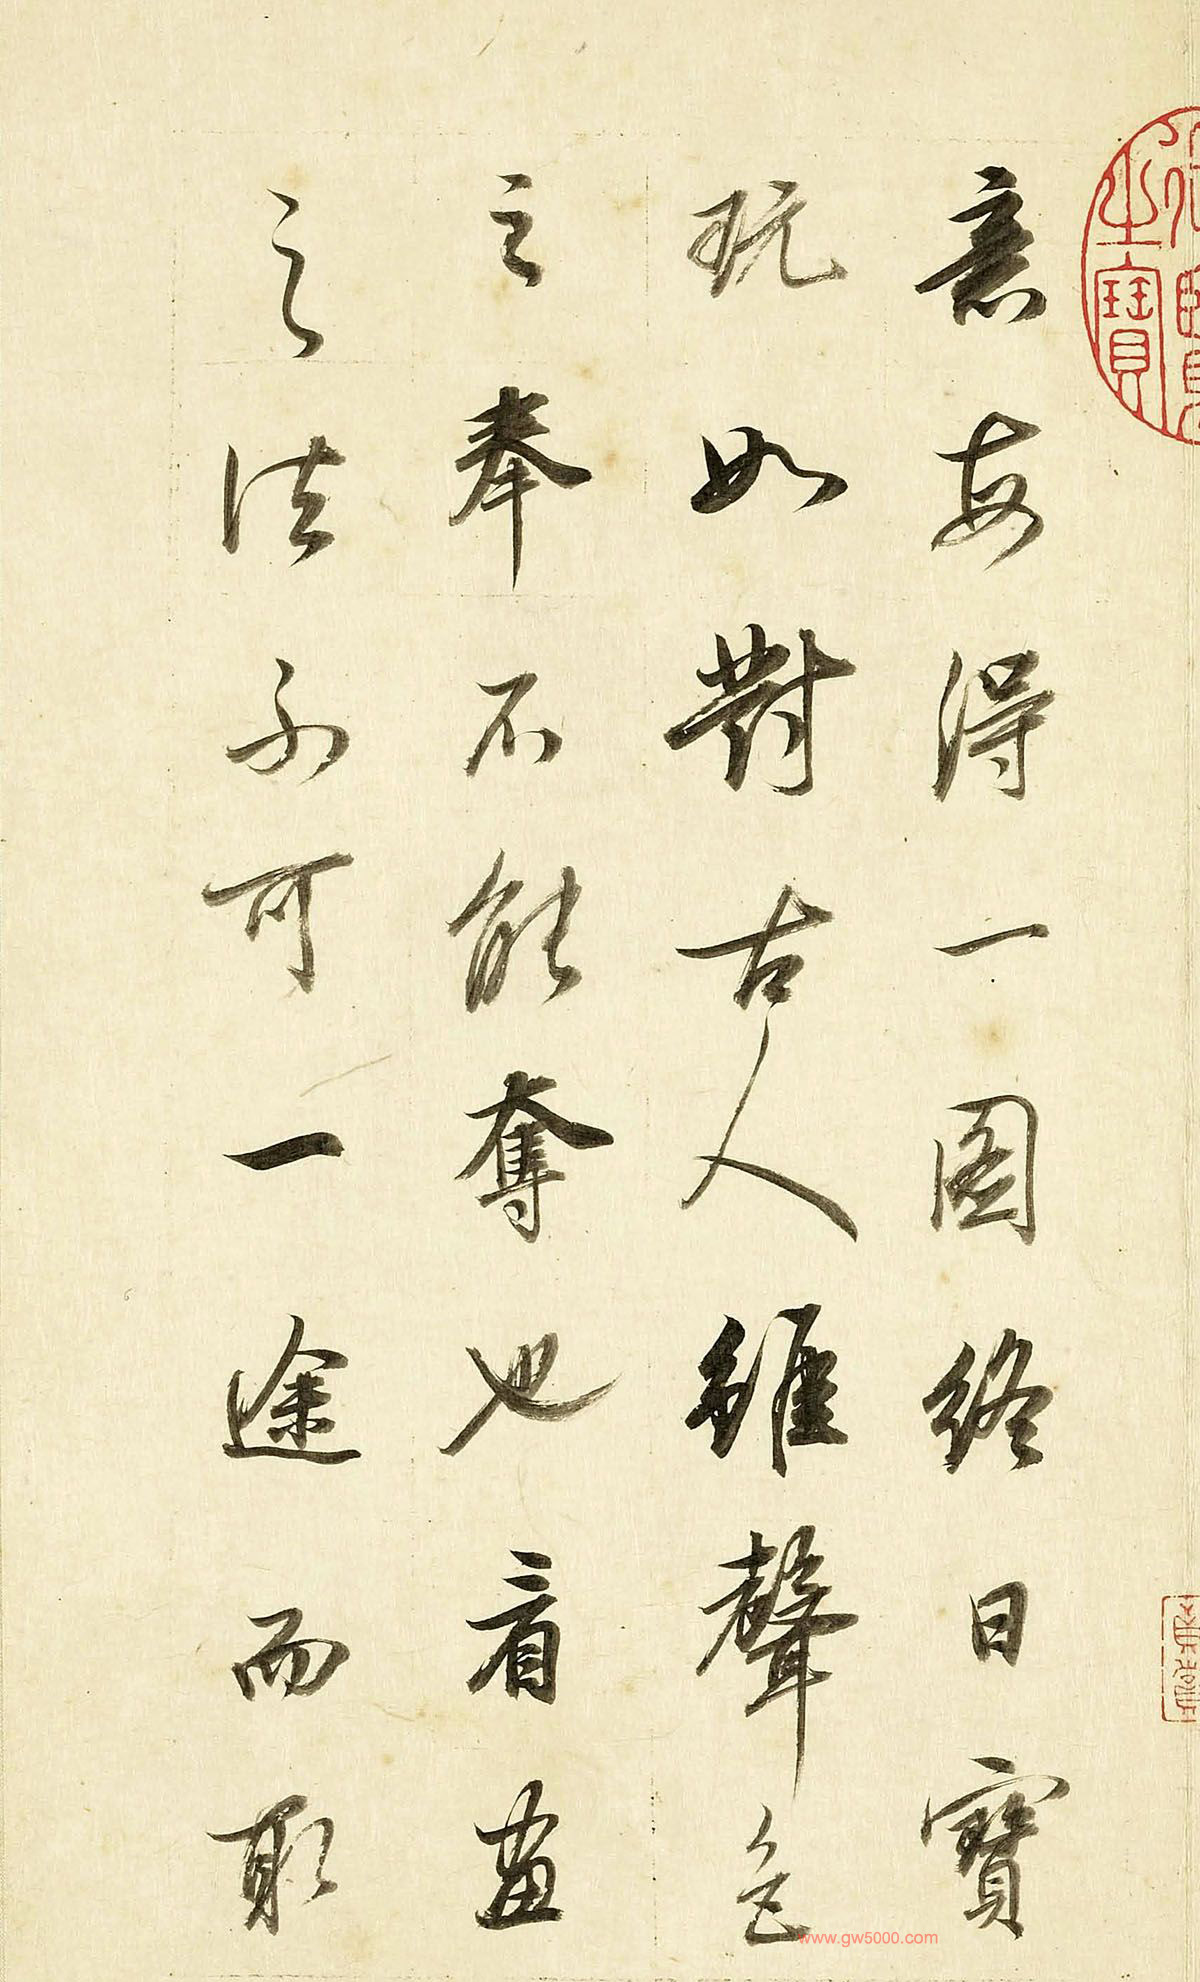 意每得一圖終日寶
玩如對古人雖聲色
之奉不能奪也看畫
之法不可一途而取
之寶
www.gw5000.com